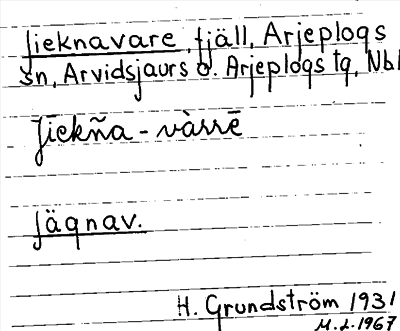 Jieknavare, fjäll, Arjeplogs
sn, Arvidsjaurs o. Arjeplogs tg, Nbl
Jīekña-vàrrē
Jäqnav.
H. Grundström 1931
M.L.1967